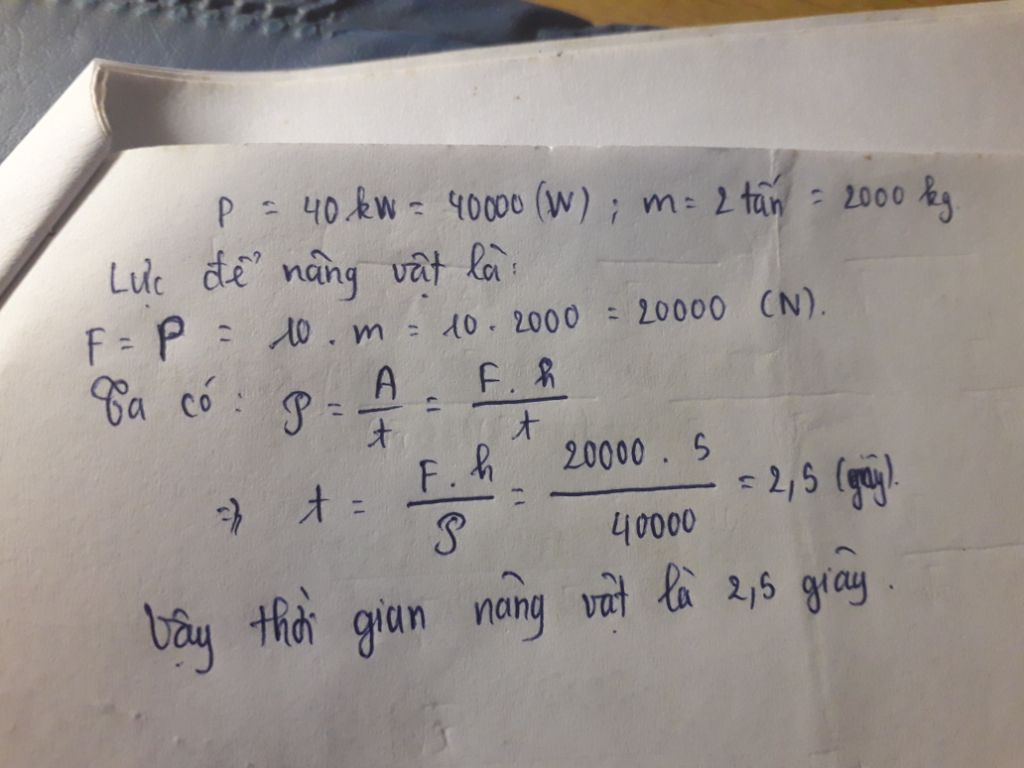 P = 40 kW = 40000 (W) ; m = 2 tấn = 2000 kg.
Lực để nâng vật là:
F = P = 10 . m = 10 . 2000 = 20000 (N).
Ta có : P = A/t = F . h/t
=> t = F . h/P = 20000 . 5/40000 = 2,5 (giây).
Vậy thời gian nâng vật là 2,5 giây.